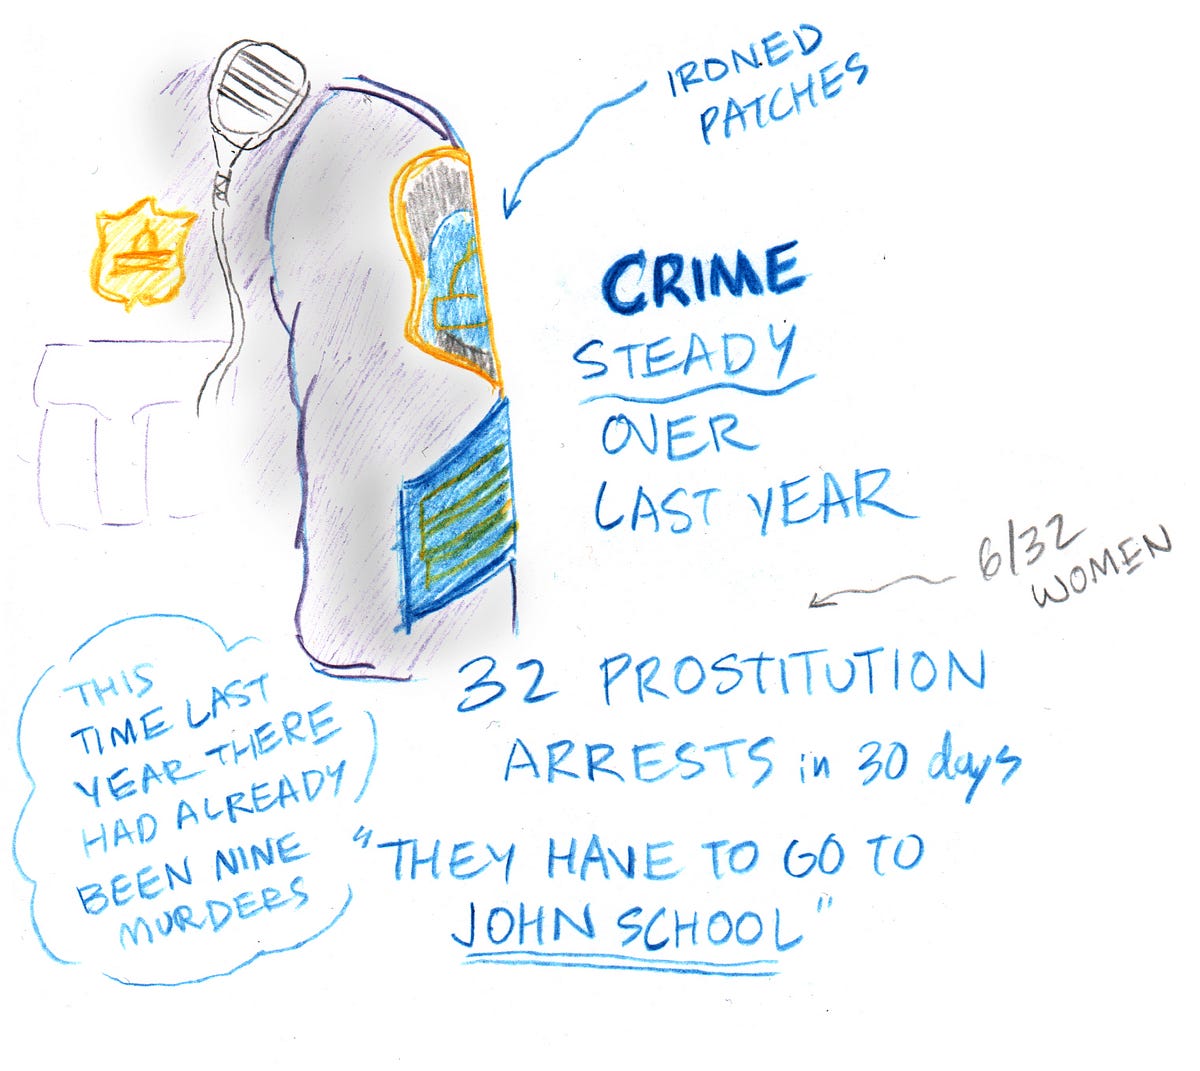 IRONED
PATCHES
CRIME
STEADY
OVER
LAST YEAR
6/32
WOMEN
32 PROSTITUTION
ARRESTS in 30 days
"THEY HAVE TO GO TO
JOHN SCHOOL"
THIS
TIME LAST
YEAR THERE
HAD ALREADY
BEEN NINE
MURDERS